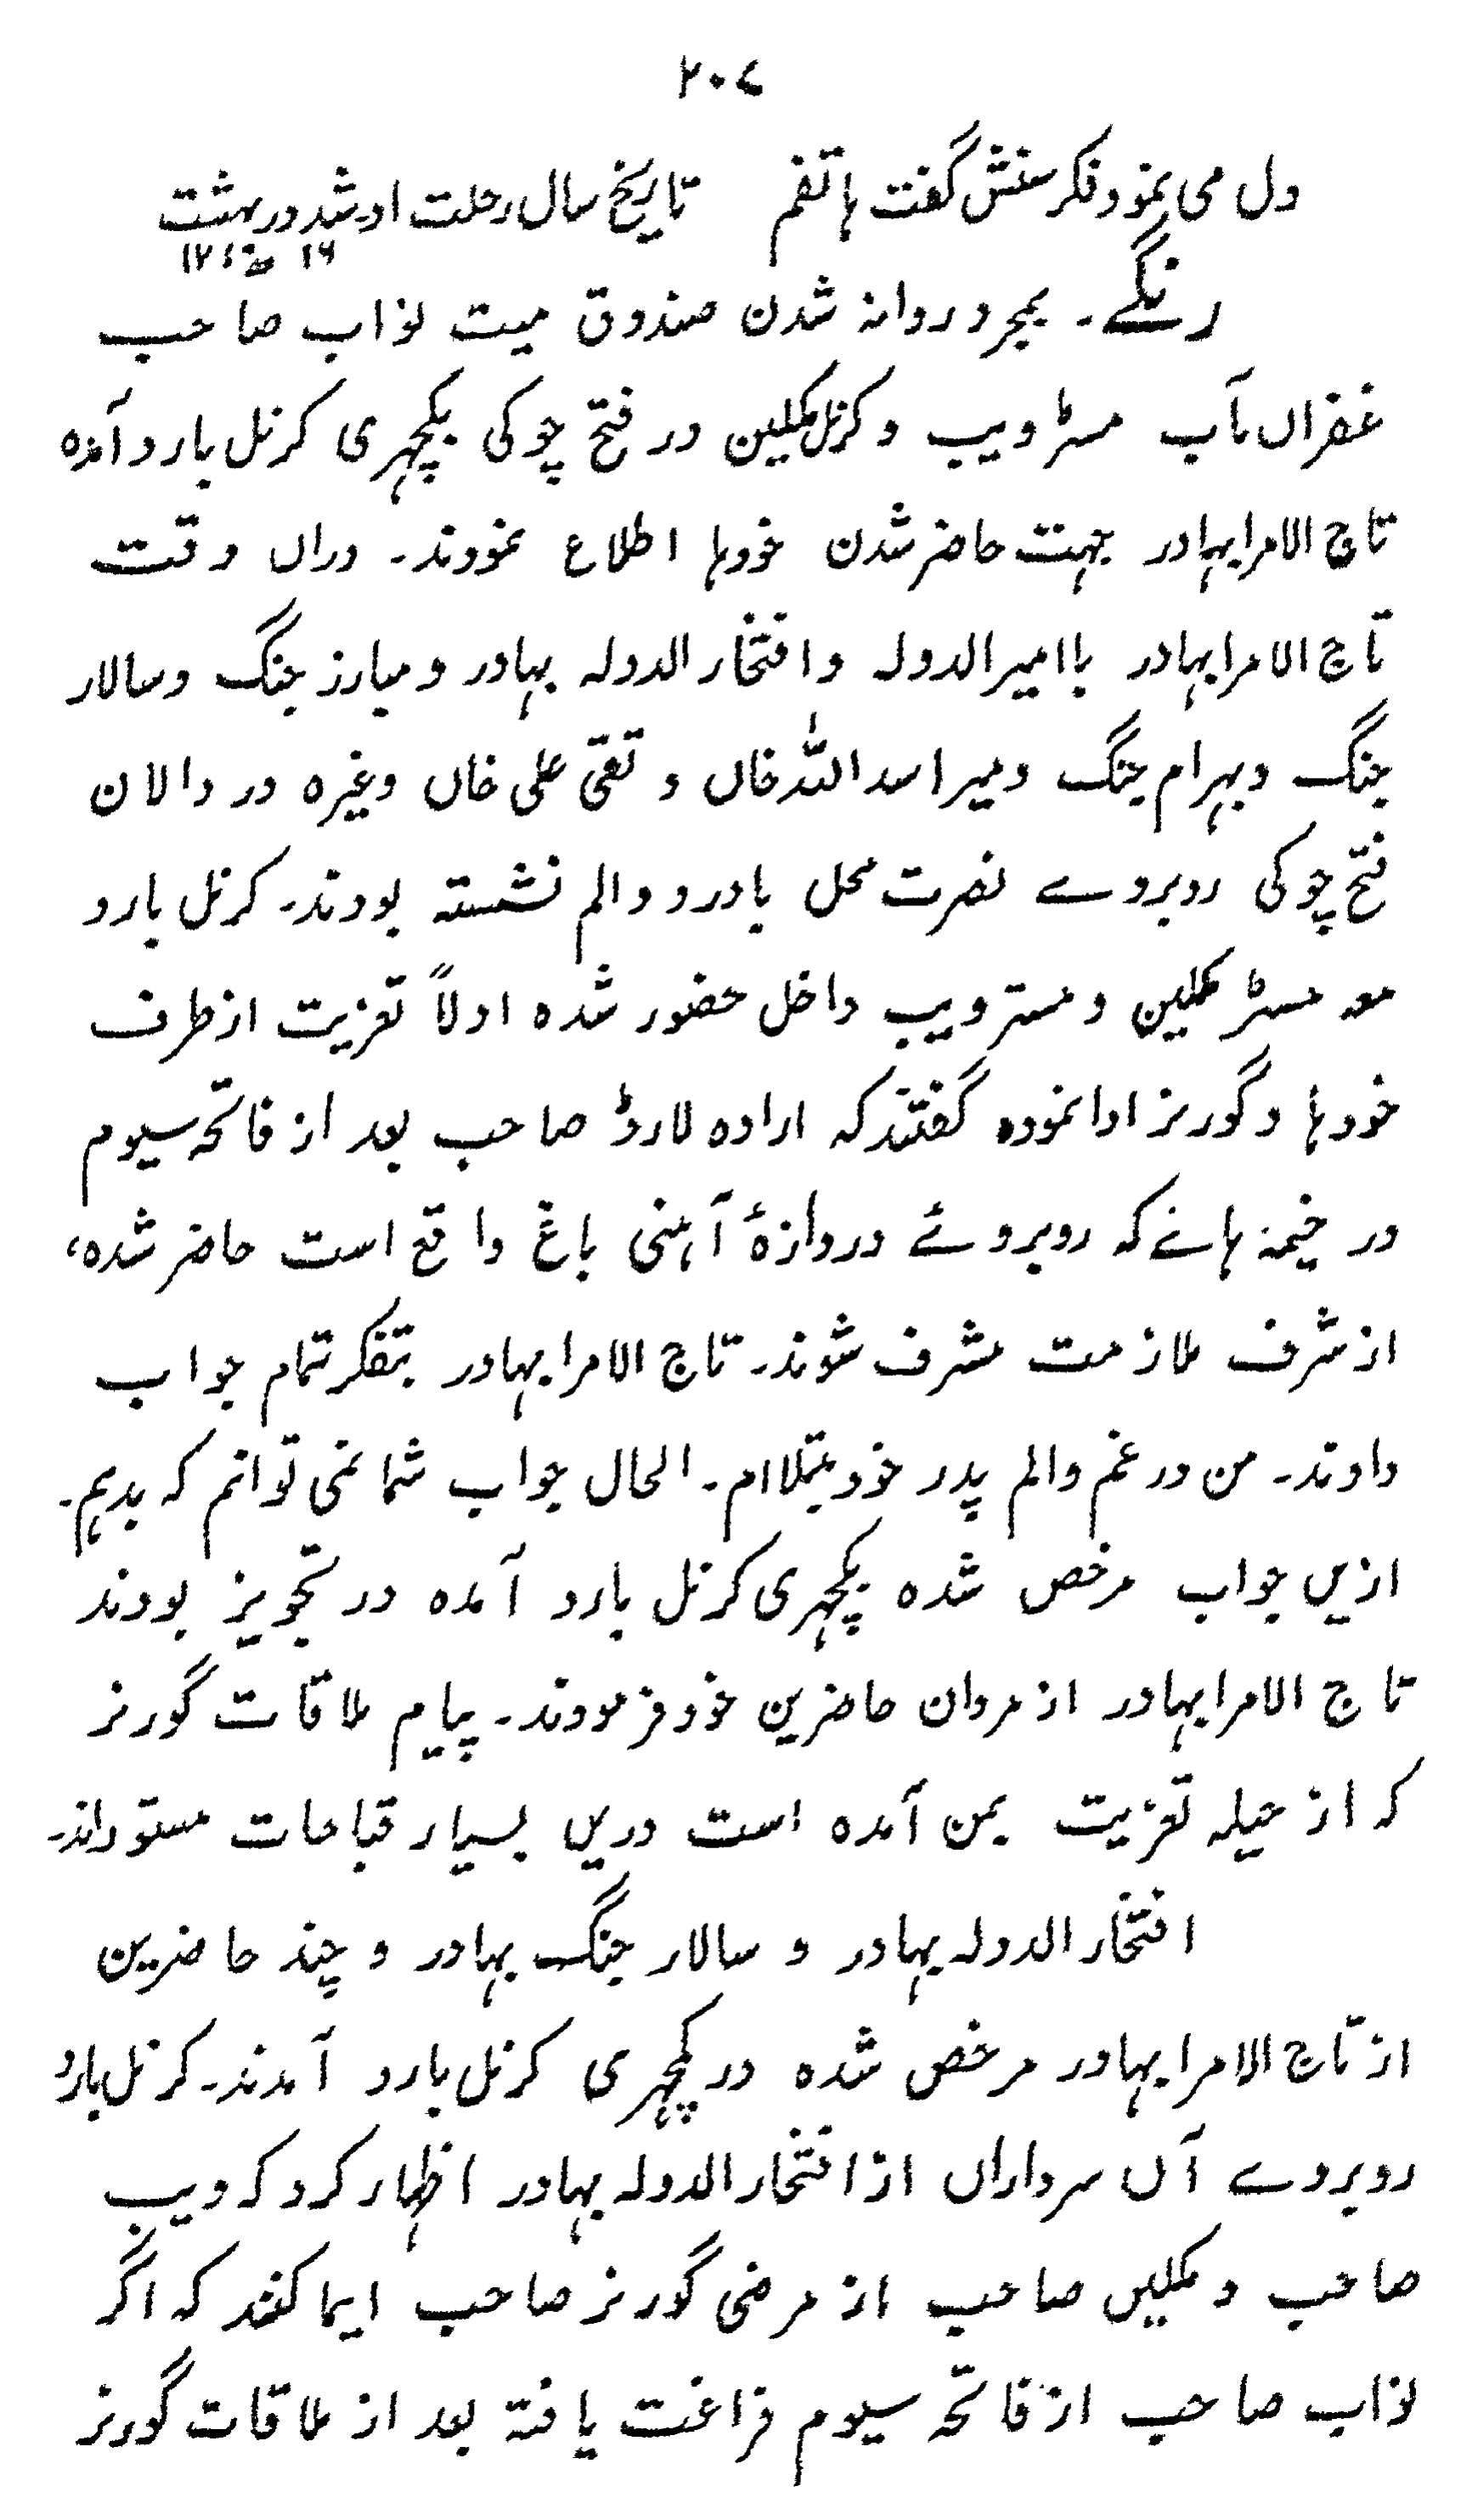 ۲۰۴
دل می نمود فکر سنش گفت ہاتفم تاریخ سال رحلت او شد در بہشت
۱۲۱۶ھ
رنگے۔ بمجرد روانہ شدن صندوق میت نواب صاحب
غفران مآب مسٹر ویب و کرنل مکلین در فتح چوکی بکچہری کرنل بارد آمدہ
تاج الامرا بہادر جہت حاضر شدن خودہا اطلاع نمودند۔ دراں وقت
تاج الامرا بہادر با امیرالدولہ و افتخارالدولہ بہادر و مبارز جنگ و سالار
جنگ و بہرام جنگ و میر اسداللہ خاں و تقی علی خاں وغیرہ در دالان
فتح چوکی روبروے نصرت محل با درد و الم نشستہ بودند۔ کرنل بارد
معہ مسٹر مکلین و مستر ویب داخل حضور شدہ اولاً تعزیت از طرف
خودہا و گورنر ادا نمودہ گفتند کہ ارادہ لارڈ صاحب بعد از فاتحہ سیوم
در خیمہ ہائے کہ روبروئے دروازۂ آہنی باغ واقع است حاضر شدہ،
از شرف ملازمت مشرف شوند۔ تاج الامرا بہادر بتفکر تمام جواب
دادند۔ من در غم و الم پدر خود مبتلا ام۔ الحال جواب شما نمی توانم کہ بدہم۔
ازیں جواب مرخص شدہ بکچہری کرنل بارد آمدہ در تجویز بودند
تاج الامرا بہادر از مردان حاضرین خود فرمودند۔ پیام ملاقات گورنر
کہ از حیلہ تعزیت بمن آمدہ است دریں بسیار قباحات مستور اند۔
افتخارالدولہ بہادر و سالار جنگ بہادر و چند حاضرین
از تاج الامرا بہادر مرخص شدہ در کچہری کرنل بارد آمدند۔ کرنل بارد
روبروے آں سرداراں از افتخارالدولہ بہادر اظہار کرد کہ ویب
صاحب و مکلیں صاحب از مرضی گورنر صاحب ایما کنند کہ اگر
نواب صاحب از فاتحہ سیوم فراغت یافتہ بعد از ملاقات گورنر